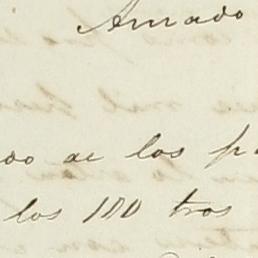 Amado
do de los
los 100 tros